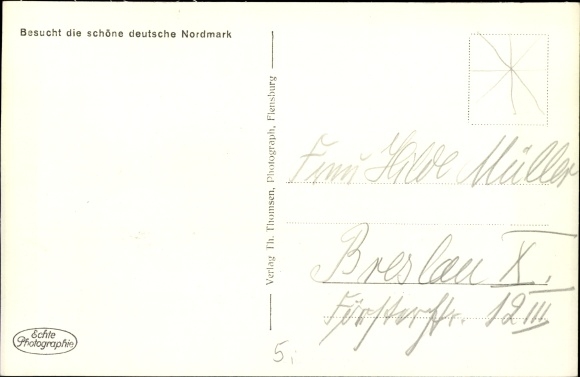 Besucht die schöne deutsche Nordmark
Verlag Th. Thomsen, Photograph, Flensburg
Frau Hilde Müller
Breslau X.
Försterstr. 12 III
Echte
Photographie
5.